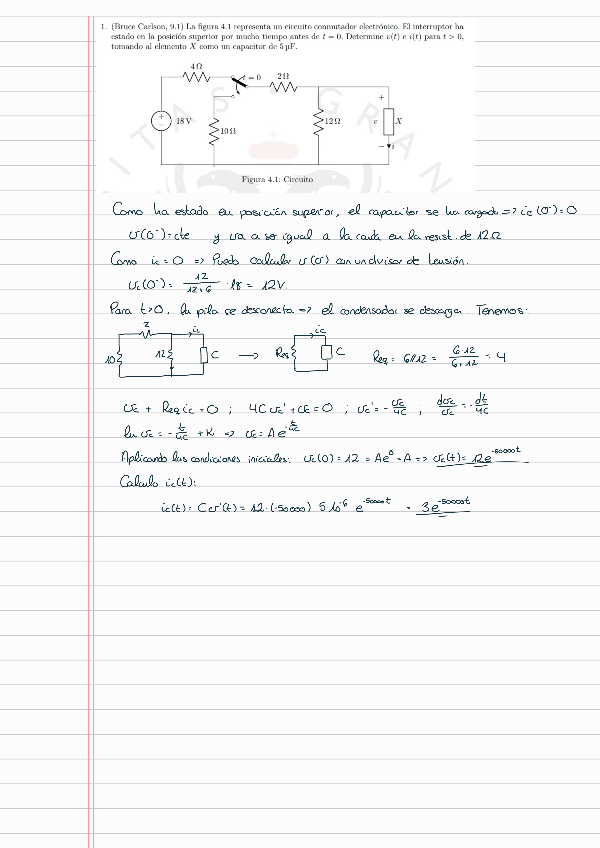 1. (Bruce Carlson, 9.1) La figura 4.1 representa un circuito conmutador electrónico. El interruptor ha
estado en la posición superior por mucho tiempo antes de t = 0. Determine v(t) e i(t) para t > 0,
tomando al elemento X como un capacitor de 5 µF.
4 Ω
t = 0
2 Ω
18 V
10 Ω
12 Ω
+
v
X
−
i
Figura 4.1: Circuito
Como ha estado en posición superior, el capacitor se ha cargado => ic(0⁻)=0
v(0⁻)=cte y va a ser igual a la caída en la resist. de 12Ω
Como ic=0 => Puedo calcular v(0⁻) con un divisor de tensión.
vc(0⁻)= 12/(12+6) · 18 = 12V.
Para t>0, la pila se desconecta => el condensador se descarga. Tenemos:
2 ic ic
10 12 C → Req C Req = 6//12 = (6·12)/(6+12) = 4
vc + Req ic = 0 ; 4C vc' + vc = 0 ; vc' = - vc/4C ; dvc/vc = - dt/4C
ln vc = - t/4C + K => vc = A e^(-t/4C)
Aplicando las condiciones iniciales: vc(0) = 12 = Ae⁰ = A => vc(t) = 12e^(-50000t)
Calculo ic(t):
ic(t) = C v'(t) = 12·(-50000) 5 10⁻⁶ e^(-50000t) = 3e^(-50000t)